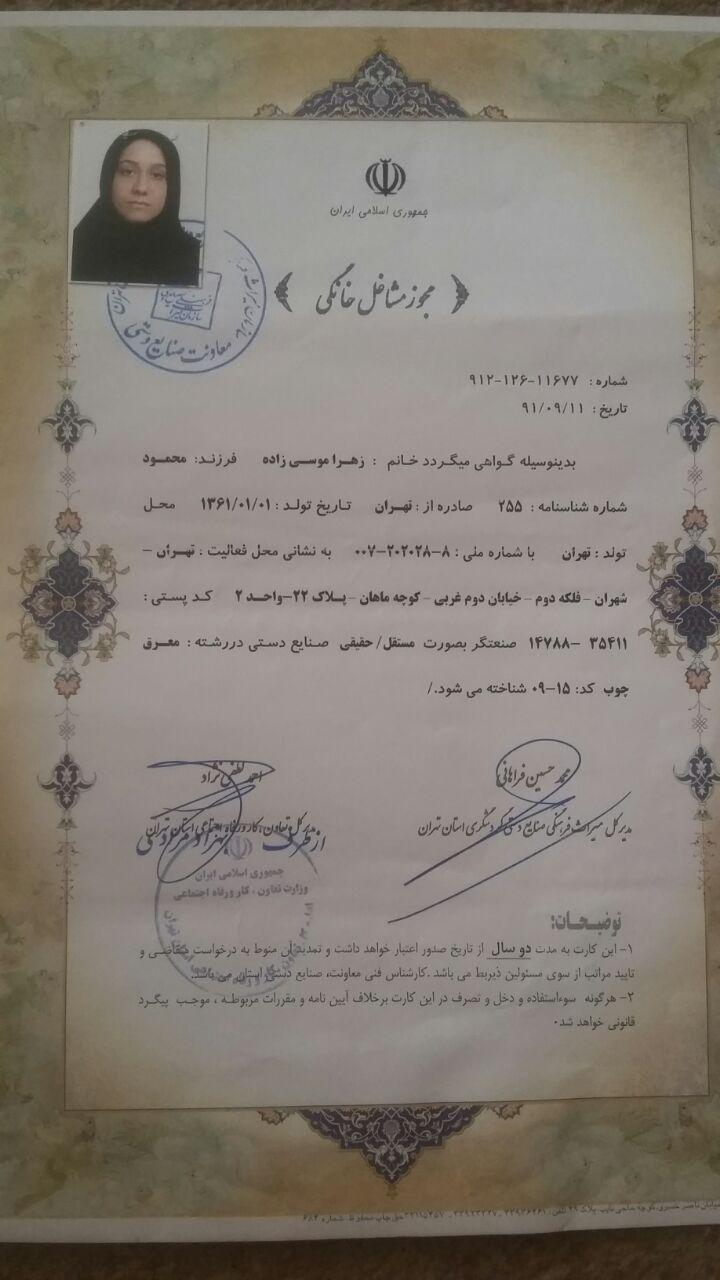 جمهوری اسلامی ایران
مجوز مشاغل خانگی
معاونت صنایع دستی
شماره : ۱۱۶۷۷-۱۲۶-۹۱۲
تاریخ : ۹۱/۰۹/۱۱
بدینوسیله گواهی میگردد خانم : زهرا موسی زاده فرزند: محمود
شماره شناسنامه : ۲۵۵ صادره از : تهران تاریخ تولد : ۱۳۶۱/۰۱/۰۱ محل
تولد : تهران با شماره ملی : ۸-۲۰۲۰۲۸-۰۰۷ به نشانی محل فعالیت : تهران -
شهران - فلکه دوم - خیابان دوم غربی - کوچه ماهان - پلاک ۲۲-واحد ۲ کد پستی :
۳۵۴۱۱ -۱۴۷۸۸ صنعتگر بصورت مستقل/ حقیقی صنایع دستی دررشته : معرق
چوب کد: ۱۵-۰۹ شناخته می شود./
محمد حسین فراهانی
مدیر کل میراث فرهنگی صنایع دستی گردشگری استان تهران
احمد لطفی نژاد
مدیر کل تعاون، کار و رفاه اجتماعی استان تهران
از طرف بهزاد مرادی
جمهوری اسلامی ایران
وزارت تعاون ، کار و رفاه اجتماعی
توضیحات:
۱- این کارت به مدت دو سال از تاریخ صدور اعتبار خواهد داشت و تمدید آن منوط به درخواست متقاضی و
تایید مراتب از سوی مسئولین ذیربط می باشد .کارشناس فنی معاونت، صنایع دستی استان می باشد.
۲- هرگونه سوءاستفاده و دخل و تصرف در این کارت برخلاف آیین نامه و مقررات مربوطه ، موجب پیگرد
قانونی خواهد شد.